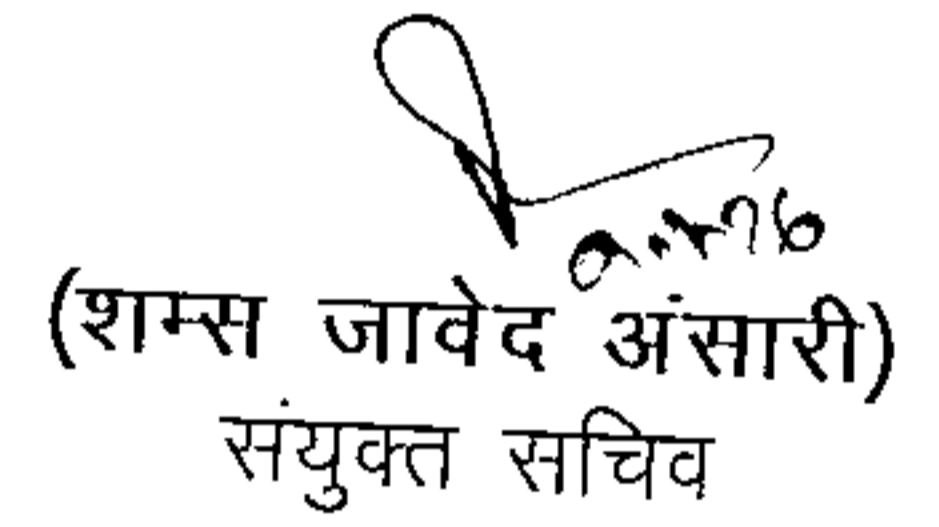 (शम्स जावेद अंसारी)
संयुक्त सचिव